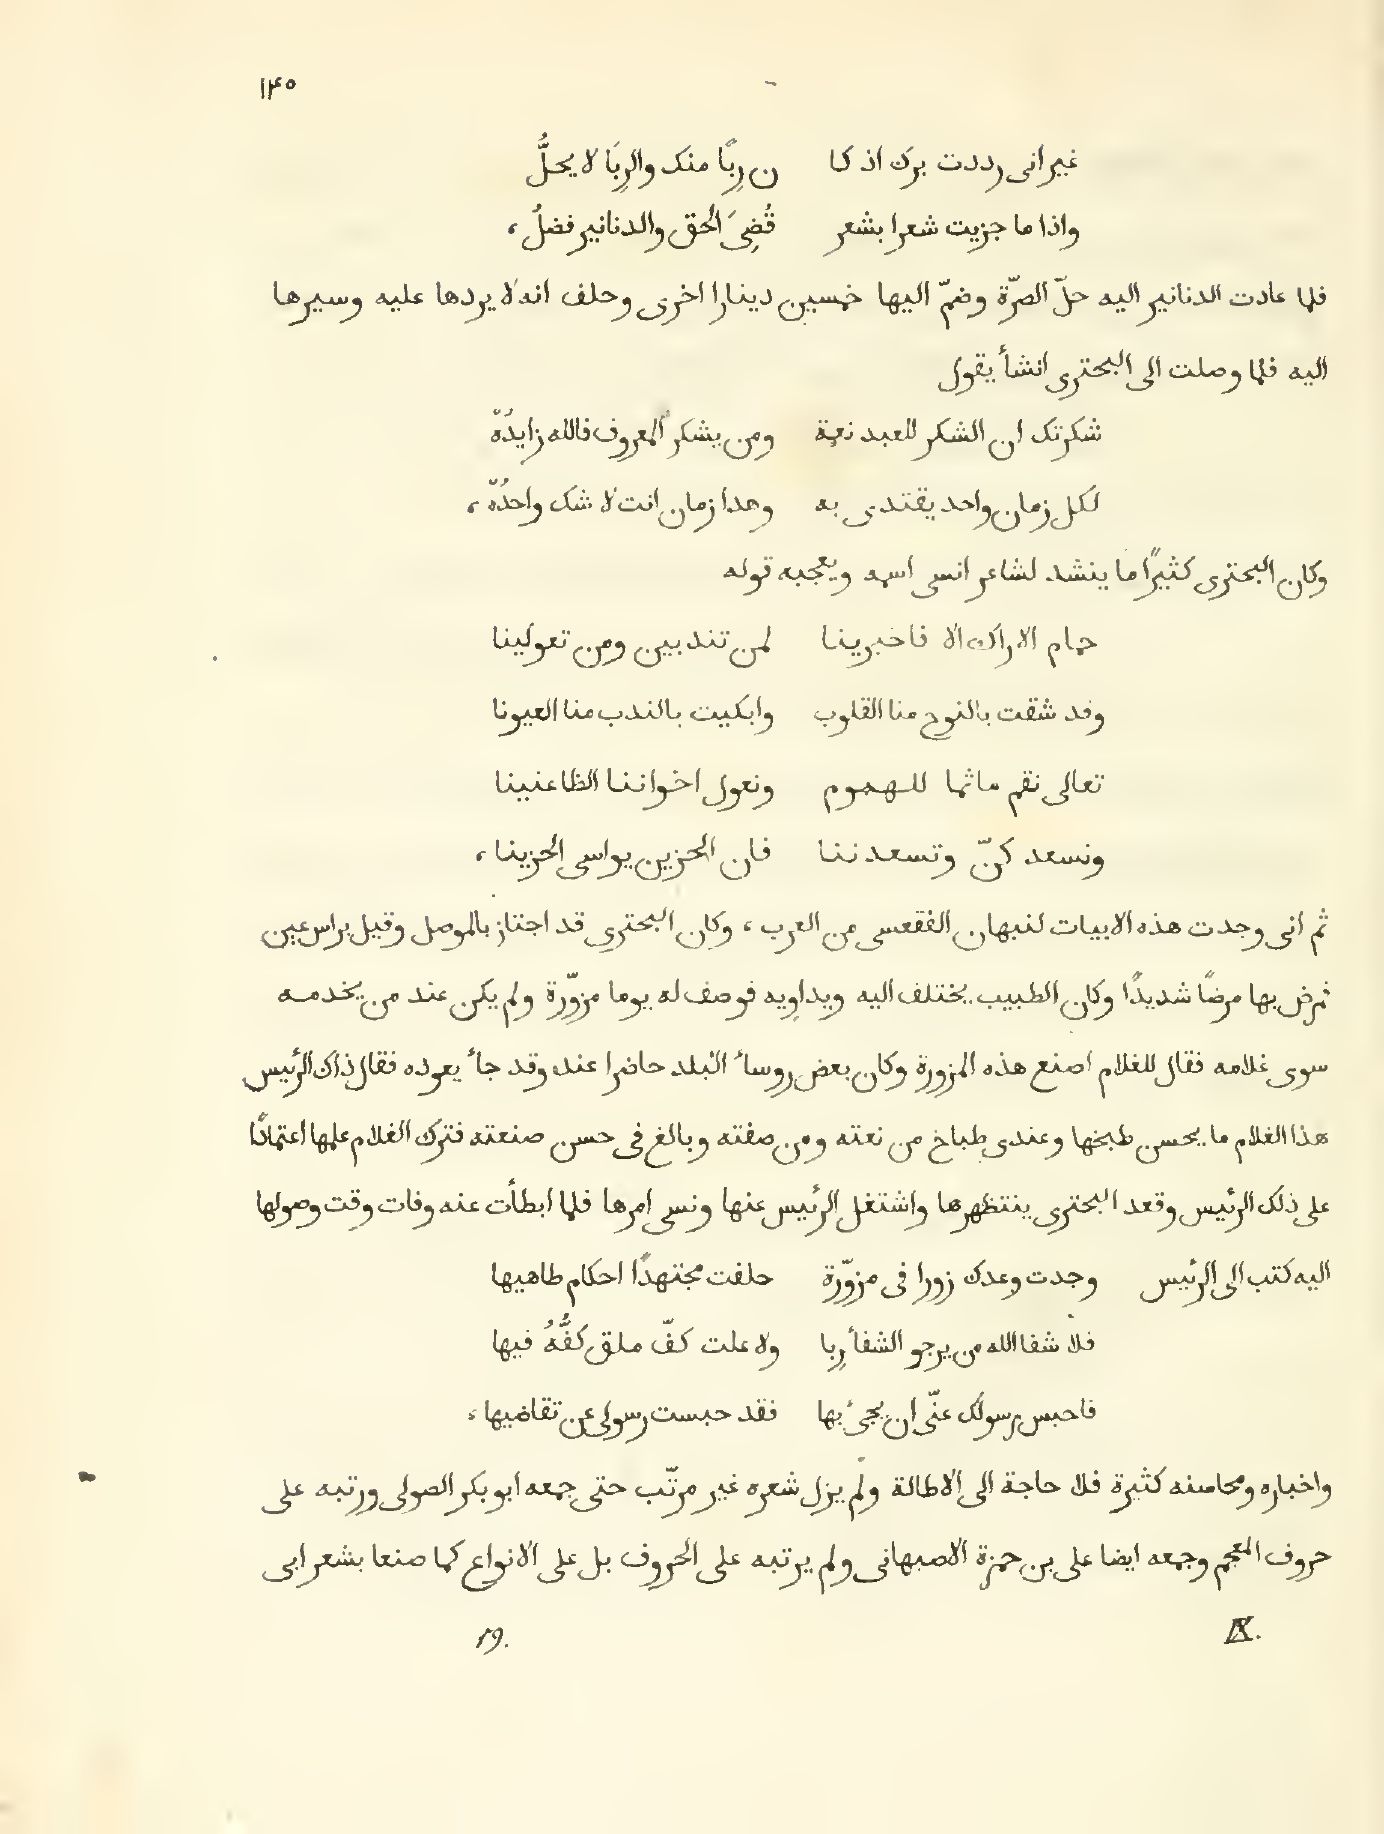 ١٤٥
غير انى رددت برك اذ كا ن رِبًا منك والرِبَا لا يحلُّ
واذا ما جزيت شعرا بشعر قُضِىَ الحق والدنانير فضلُ،
فلما عادت الدنانير اليه حلّ الصرّة وضمّ اليها خمسين دينارا اخرى وحلف انه لا يردها عليه وسيرها
اليه فلما وصلت الى البحترى انشأ يقول
شكرتك ان الشكر للعبد نعمة ومن يشكر المعروف فالله زايدُهْ
لكل زمان واحد يقتدى به وهذا زمان انت لا شك واحدُهْ،
وكان البحترى كثيرًا ما ينشد لشاعر انسى اسمه ويعجبه قوله
حمام الاراك الا فاخبرينا لمن تندبين ومن تعولينا
وقد شقت بالنوح منا القلوب وابكيت بالندب منا العيونا
تعالى نقم ماتما للهموم ونعول اخواننا الظاعنينا
ونسعد كنّ وتسعدننا فان الحزين يواسى الحزينا،
ثم انى وجدت هذه الابيات لنبهان الفقعسى من العرب، وكان البحترى قد اجتاز بالموصل وقيل براس عين
فمرض بها مرضًا شديدًا وكان الطبيب يختلف اليه ويداويه فوصف له يوما مزوّرة ولم يكن عند من يخدمه
سوى غلامه فقال للغلام اصنع هذه المزورة وكان بعض روساء البلد حاضرا عنده وقد جاء يعوده فقال ذاك الرئيس
هذا الغلام ما يحسن طبخها وعندى طباخ من نعته ومن صفته وبالغ فى حسن صنعته فترك الغلام علمها اعتمادًا
على ذلك الرئيس وقعد البحترى ينتظهرها واشتغل الرئيس عنها ونسى امرها فلما ابطأت عنه وفات وقت وصولها
اليه كتب الى الرئيس وجدت وعدك زورا فى مزوّرة حلفت مجتهدًا احكام طاهيها
فلا شفا الله من يرجو الشفاء بها ولا علت كفّ ملق كفُّهُ فيها
فاحبس رسولك عنّى ان يجىء بها فقد حبست رسولى عن تقاضيها،
واخباره ومحاسنه كثيرة فلا حاجة الى الاطالة ولم يزل شعره غير مرتّب حتى جمعه ابو بكر الصولى ورتبه على
حروف المعجم وجمعه ايضا على بن حمزة الاصبهانى ولم يرتبه على الحروف بل على الانواع كما صنعا بشعر ابى
IX. 19.